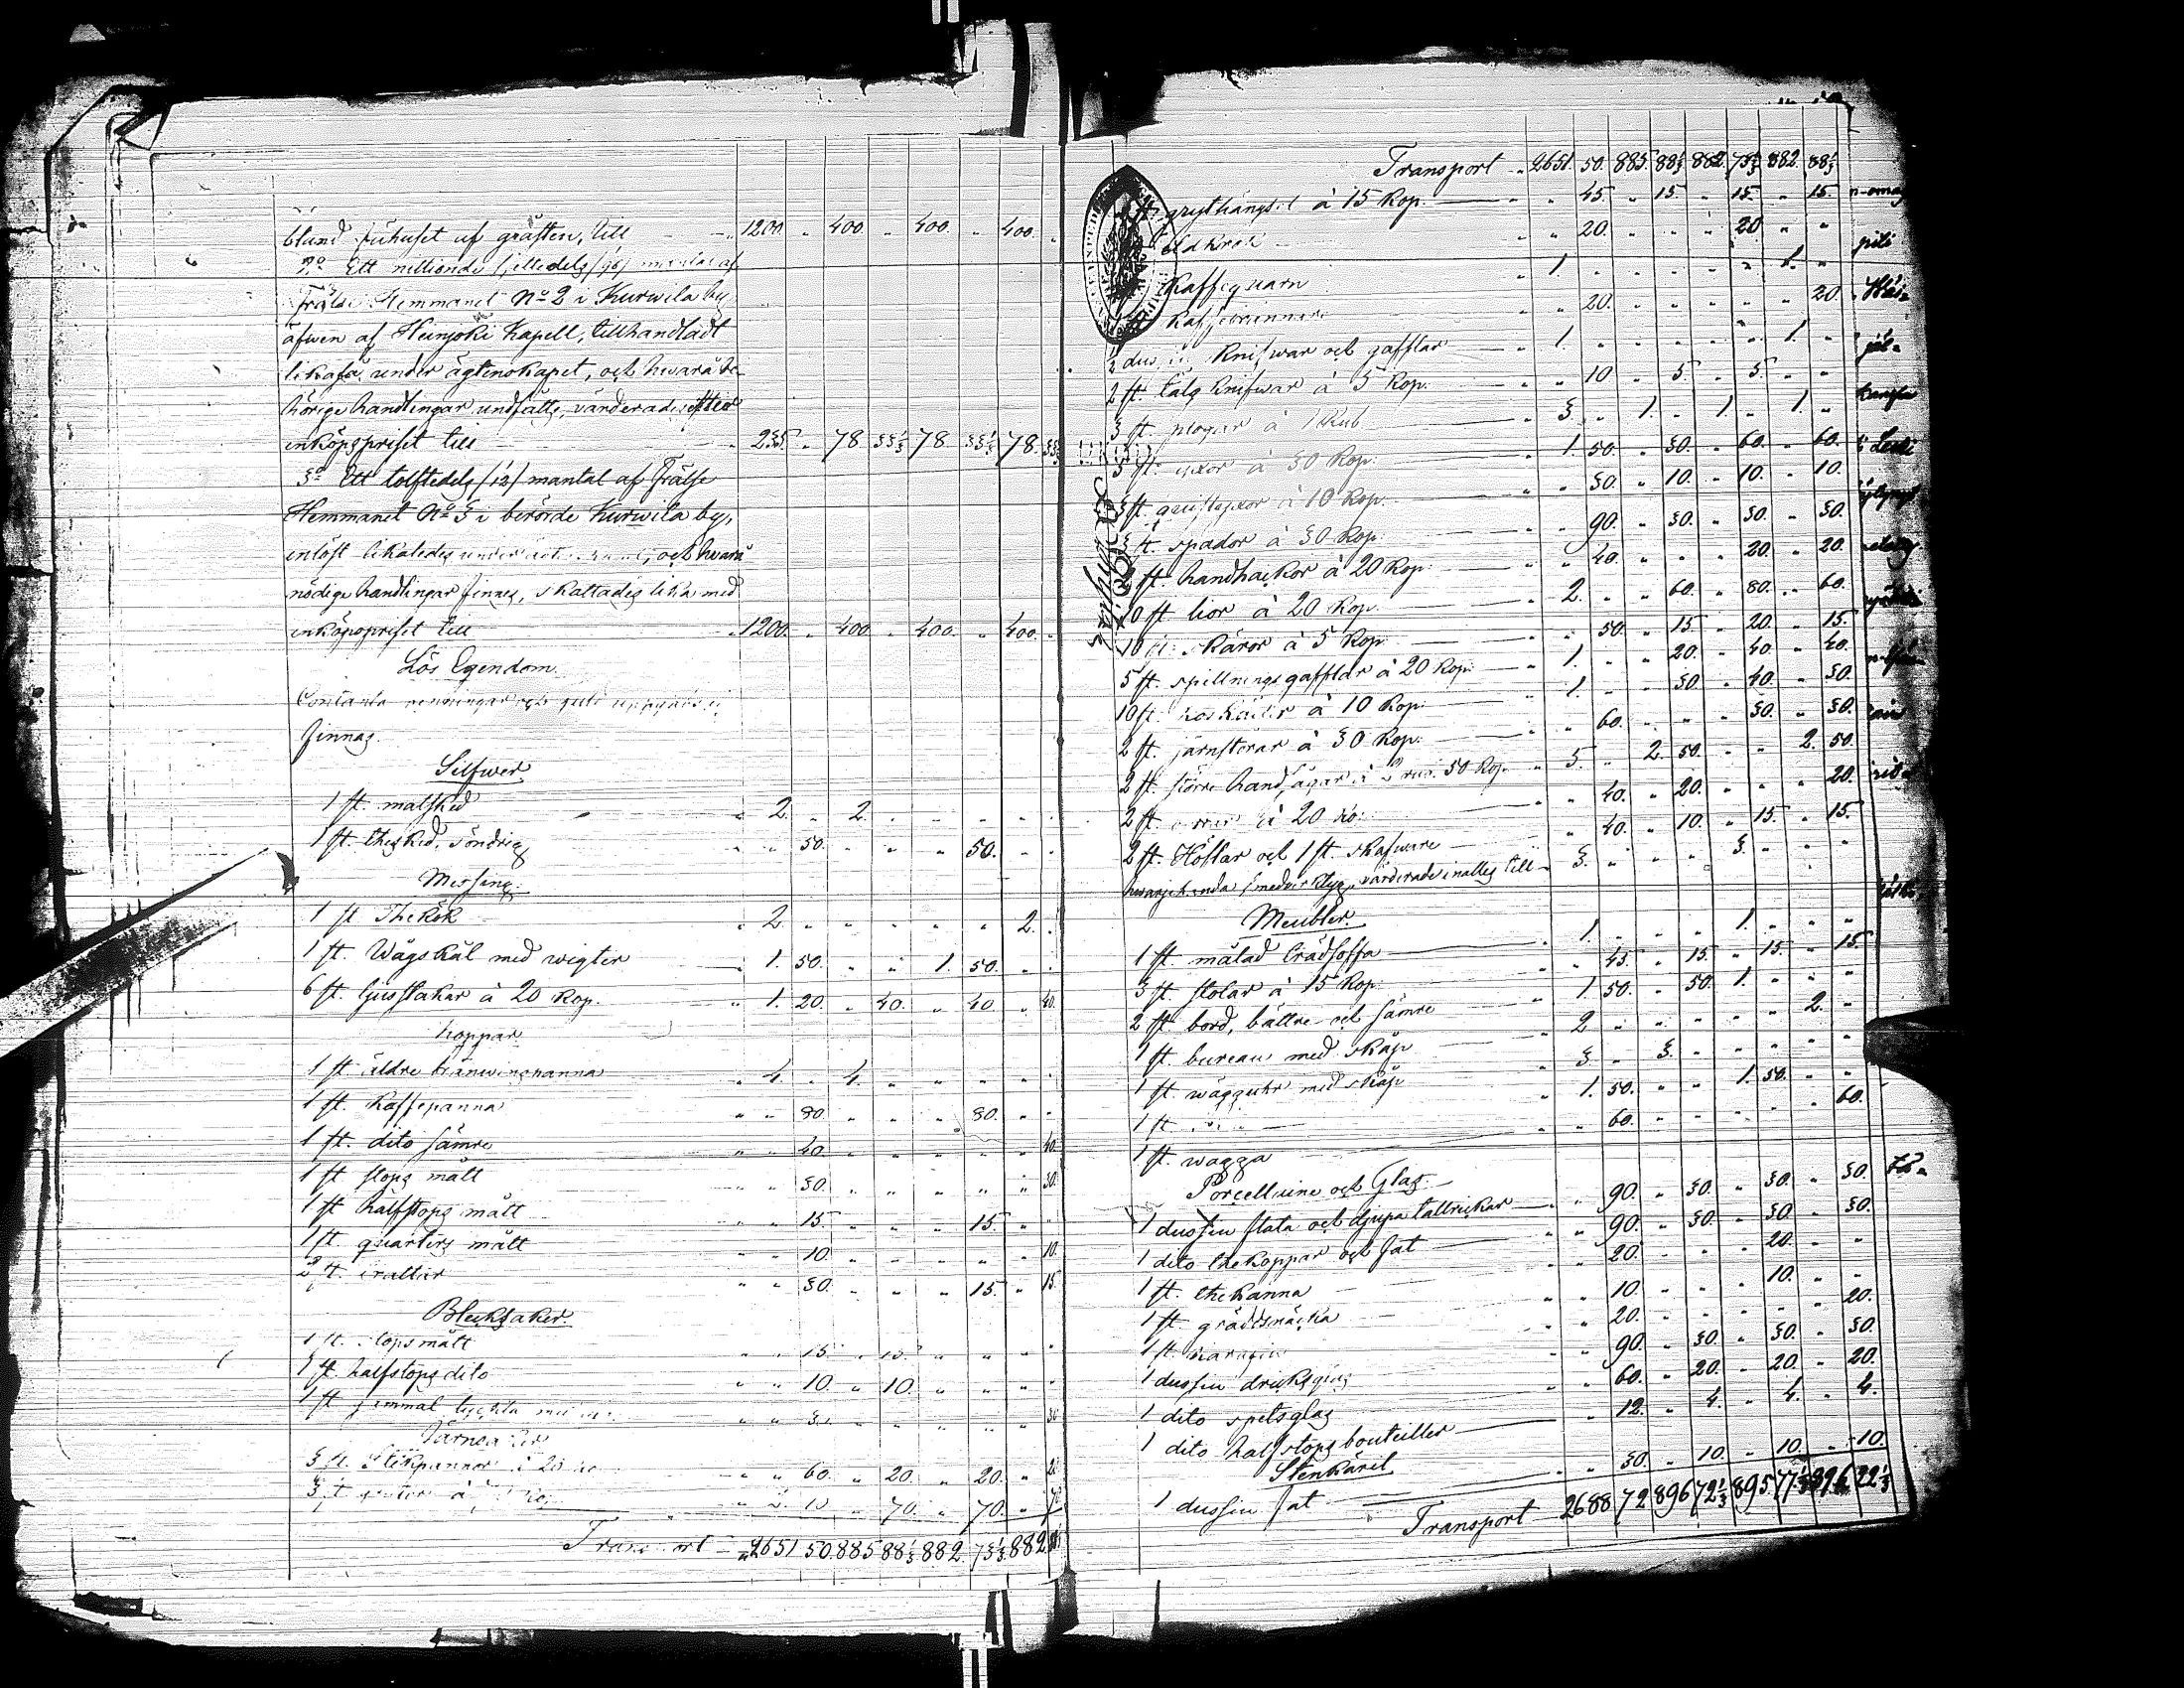 bland fähuset af gråsten, till " 1200. " 400. " 400. " 400. "
2o Ett nittionde mantal af
Frälse Hemmanet No 2 i Kurwila by
äfwen af Heinjoki Kapell, tillhandladt
likaså under ägtenskapet, och hwarå be-
hörige handlingar undfåtts, värderades efter
inköpspriset till " 235 " 78 33⅓ 78 33⅓ 78 33⅓
3o Ett tolftedels /12/ mantal af Frälse
Hemmanet No 3 i berörde Kurwila by,
inlöst likaledes under och hwarå
nödige handlingar finnes, skattades lika med
inköpspriset till " 1200. " 400. " 400. " 400. "
Lös Egendom
Contanta penningar och uppgåfs ej
finnas.
Silfwer
1 st. matsked " 2. " 2. " " " " "
1 st. thesked, söndrig " " 50. " " " 50. " "
Messing
1 st Thekök " 2. " " " " " 2. "
1 st. Wågskål med wigter " 1. 50. " " 1. 50. " "
6 st. ljusstakar à 20 Kop. " 1. 20. " 40. " 40 " 40.
Koppar
1 st äldre bränwinspanna " 4. " 4. " " " " "
1 st. Kaffepanna " " 80. " " " 80. " "
1 st. dito sämre " " 40. " " " " " 40.
1 st stops mått " " 30. " " " " " 30.
1 st halfstops mått " " 15. " " " 15. " "
1 st. quarters mått " " 10. " " " " " 10.
2 st. trattar " " 30. " " " 15. " 15
Bleksaker
1 st. stopsmått " " 15. " 15. " " " "
1 st. halfstops dito " " 10. " 10. " " " "
1 st gammal lyckta " " 30. " " " " " 30
Järnsaker
3 st. Stekpannor à 20 " " 60. " 20. " 20. " 20
3 st. grytor à " 2. 10 " 70. " 70. " 70
Transport " 2651 50. 885 88⅓ 882. 73⅓ 882
Transport " 2651. 50. 885. 88⅓ 882. 73⅓ 882. 88⅓
st. grythängsel à 15 Kop. " " 45. " 15. " 15. " 15.
eldkrok " " 20. " " " 20 " "
Kaffequarn " 1. " " " " " 1. "
Kaffebrännare " " 20. " " " " " 20.
½ dus. Knifwar och gafflar " 1. " " " " " 1. "
2 st. tälg knifwar à 5 Kop. " " 10 " 5. " 5. " "
3 st plogar à 1 Rub " 3. " 1. " 1. " 1. "
5 st. yxor à 30 Kop. " 1. 50. " 30. " 60. " 60.
3 st. qvistyxor à 10 Kop. " " 30. " 10. " 10. " 10.
3 st. spador à 30 Kop. " " 90. " 30. " 30. " 30.
2 st. handhackor à 20 Kop. " " 40. " " " 20. " 20.
10 st lior à 20 Kop. " 2. " " 60. " 80. " 60.
10 st. skäror à 5 Kop. " " 50. " 15. " 20. " 15.
5 st. spillningsgafflar à 20 Kop. " 1. " " 20. " 40. " 40.
10 st. à 10 Kop. " 1. " " 30. " 40. " 30.
2 st. järnstörar à 30 Kop. " " 60. " " " 30. " 30.
2 st. större handsågar à 2 rub. 50 Kop. " 5. " 2. 50. " " 2. 50.
2 st à 20 " " 40. " 20. " " " 20.
2 st. Höflar och 1 st. skafware " " 40. " 10. " 15. " 15.
hwarjehanda smedverktyg, värderade inalles till " 3. " " " 3. " " "
Meubler.
1 st målad trädsoffa " 1. " " " 1. " " "
3 st. stolar à 15 Kop. " " 45. " 15. " 15. " 15
2 st bord, bättre och sämre " 1. 50. " 50. 1. " " "
1 st. bureau med skåp " 2 " " " " " 2. "
1 st wägguhr med skåp " 3. " 3. " " " " "
1 st. " 1. 50. " " 1. 50. " "
1 st. wagga " " 60. " " " " " 60.
Porcellaine och Glas.
1 dussin flata och djupa tallrickar " " 90. " 30. " 30. " 30.
1 dito thekoppar och fat " " 90. " 30. " 30. " 30.
1 st. thekanna " " 20. " " " 20. " "
1 st. gräddsnäcka " " 10. " " " 10. " "
1 st. karafin " " 20. " " " " " 20.
1 dussin dricksglas " " 90. " 30. " 30. " 30.
1 dito spetsglas " " 60. " 20. " 20. " 20.
1 dito halfstops bouteiller " " 12. " 4. " 4. " 4.
Stenkäril
1 dussin fat " " 30. " 10. " 10. " 10.
Transport 2688 72 896 72⅓ 895 77⅓ 896 22⅓